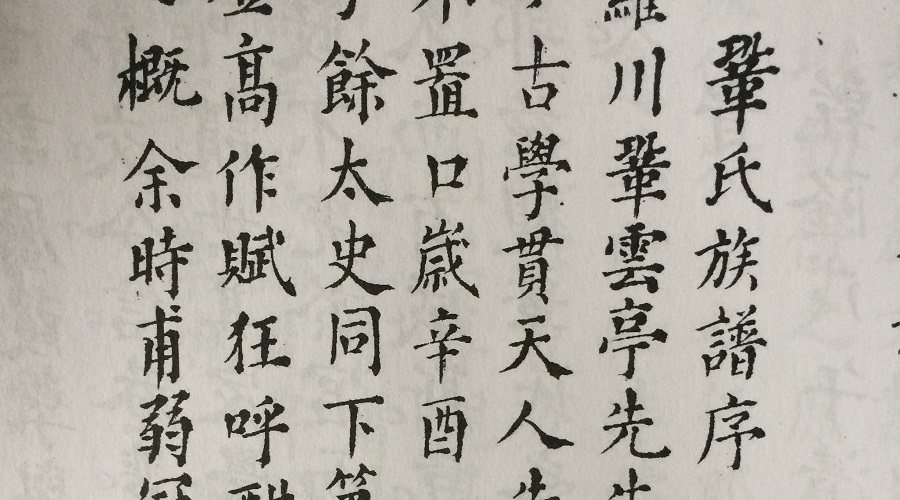 鞏氏族譜序
羅川鞏雲亭先生
古學貫天人
置口歲辛酉
餘太史同下第
高作賦狂呼
概余時甫弱冠